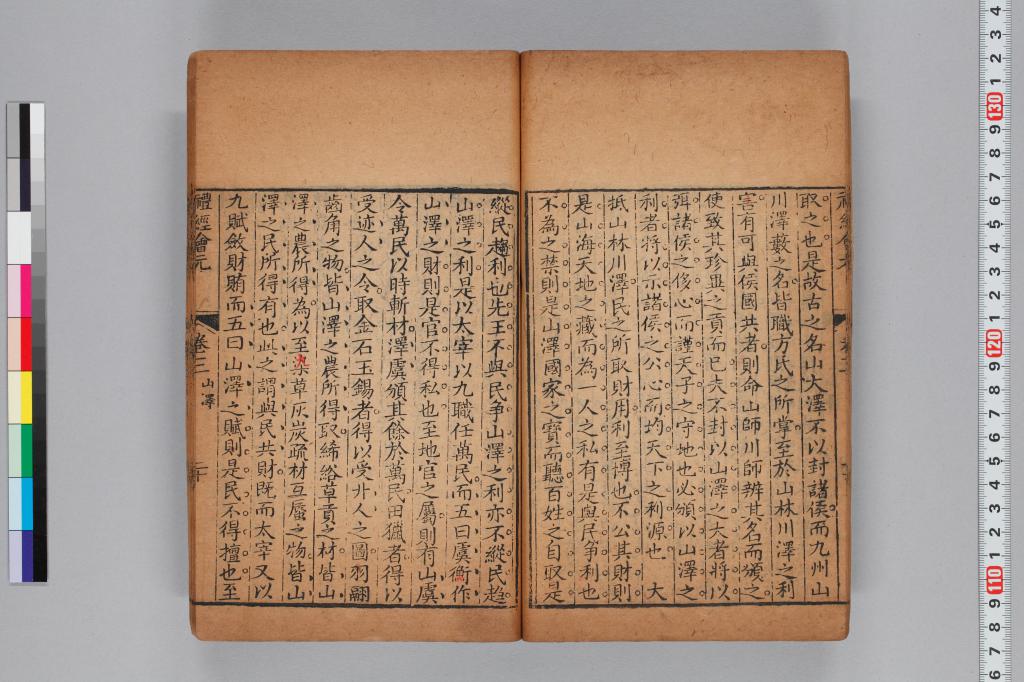 取之也是故古之名山大澤不以封諸侯而九州山
川澤藪之名皆職方氏之所掌至於山林川澤之利
害有可與侯國共者則命山師川師辨其名而頒之
使致其珍異之貢而已夫不封以山澤之大者將以
弭諸侯之侈心而謹天子之守地也必頒以山澤之
利者將以示諸侯之公心而均天下之利源也 大
抵山林川澤民之所取財用利至博也不公其財則
是山海天地之藏而為一人之私有是與民爭利也
不為之禁則是山澤國家之寶而聽百姓之自取是
縱民趨利也先王不與民爭山澤之利亦不縱民趨
山澤之利是以太宰以九職任萬民而五曰虞衡作
山澤之財則是官不得私也至地官之屬則有山虞
令萬民以時斬材澤虞頒其餘於萬民田獵者得以
受迹人之令取金石玉錫者得以受丱人之圖羽翮
齒角之物皆山澤之農所得取絺綌草貢之材皆山
澤之農所得為以至染草灰炭疏材互蜃之物皆山
澤之民所得有也此之謂與民共財既而太宰又以
九賦斂財賄而五曰山澤之賦則是民不得擅也至
禮經會元
卷三
山澤